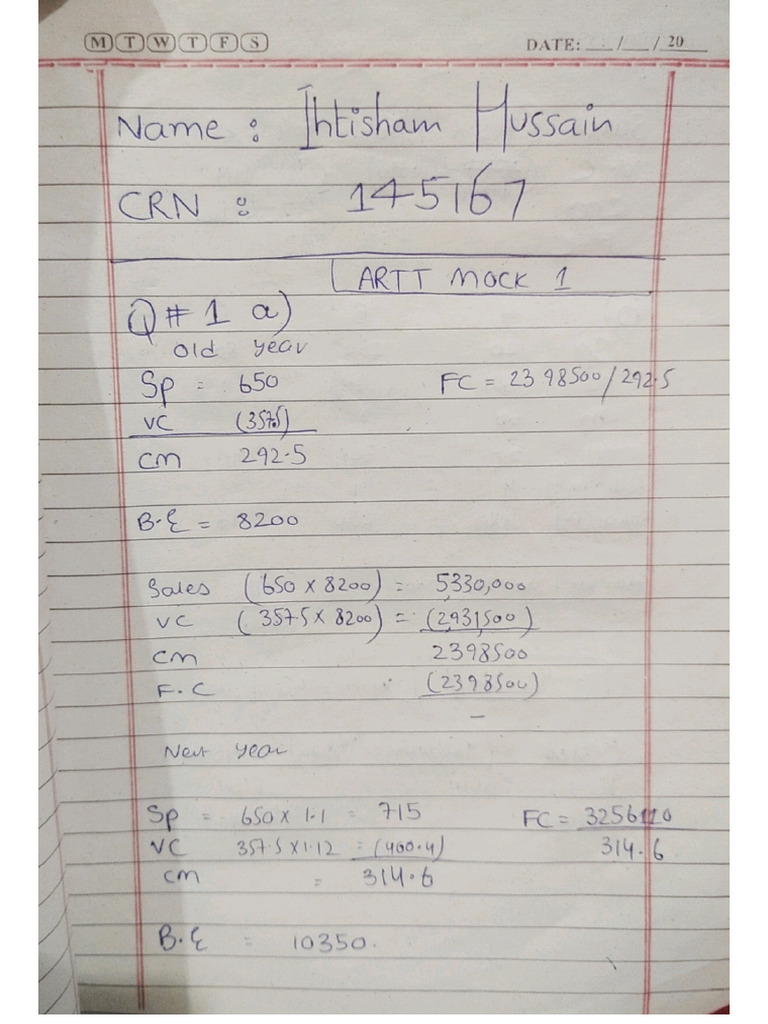 M T W T F S DATE: __/__/20__
Name : Ihtisham Hussain
CRN : 145167
ARTT MOCK 1
Q # 1 a)
Old year
Sp = 650 FC = 2398500/292.5
VC (357.5)
CM 292.5
B.E = 8200
Sales (650 x 8200) = 5330,000
VC (357.5 x 8200) = (2,931,500)
CM 2398500
F.C (2398500)
–
Next year
Sp = 650 x 1.1 = 715 FC = 3256110
VC 357.5 x 1.12 = (400.4) 314.6
CM = 314.6
B.E = 10350.